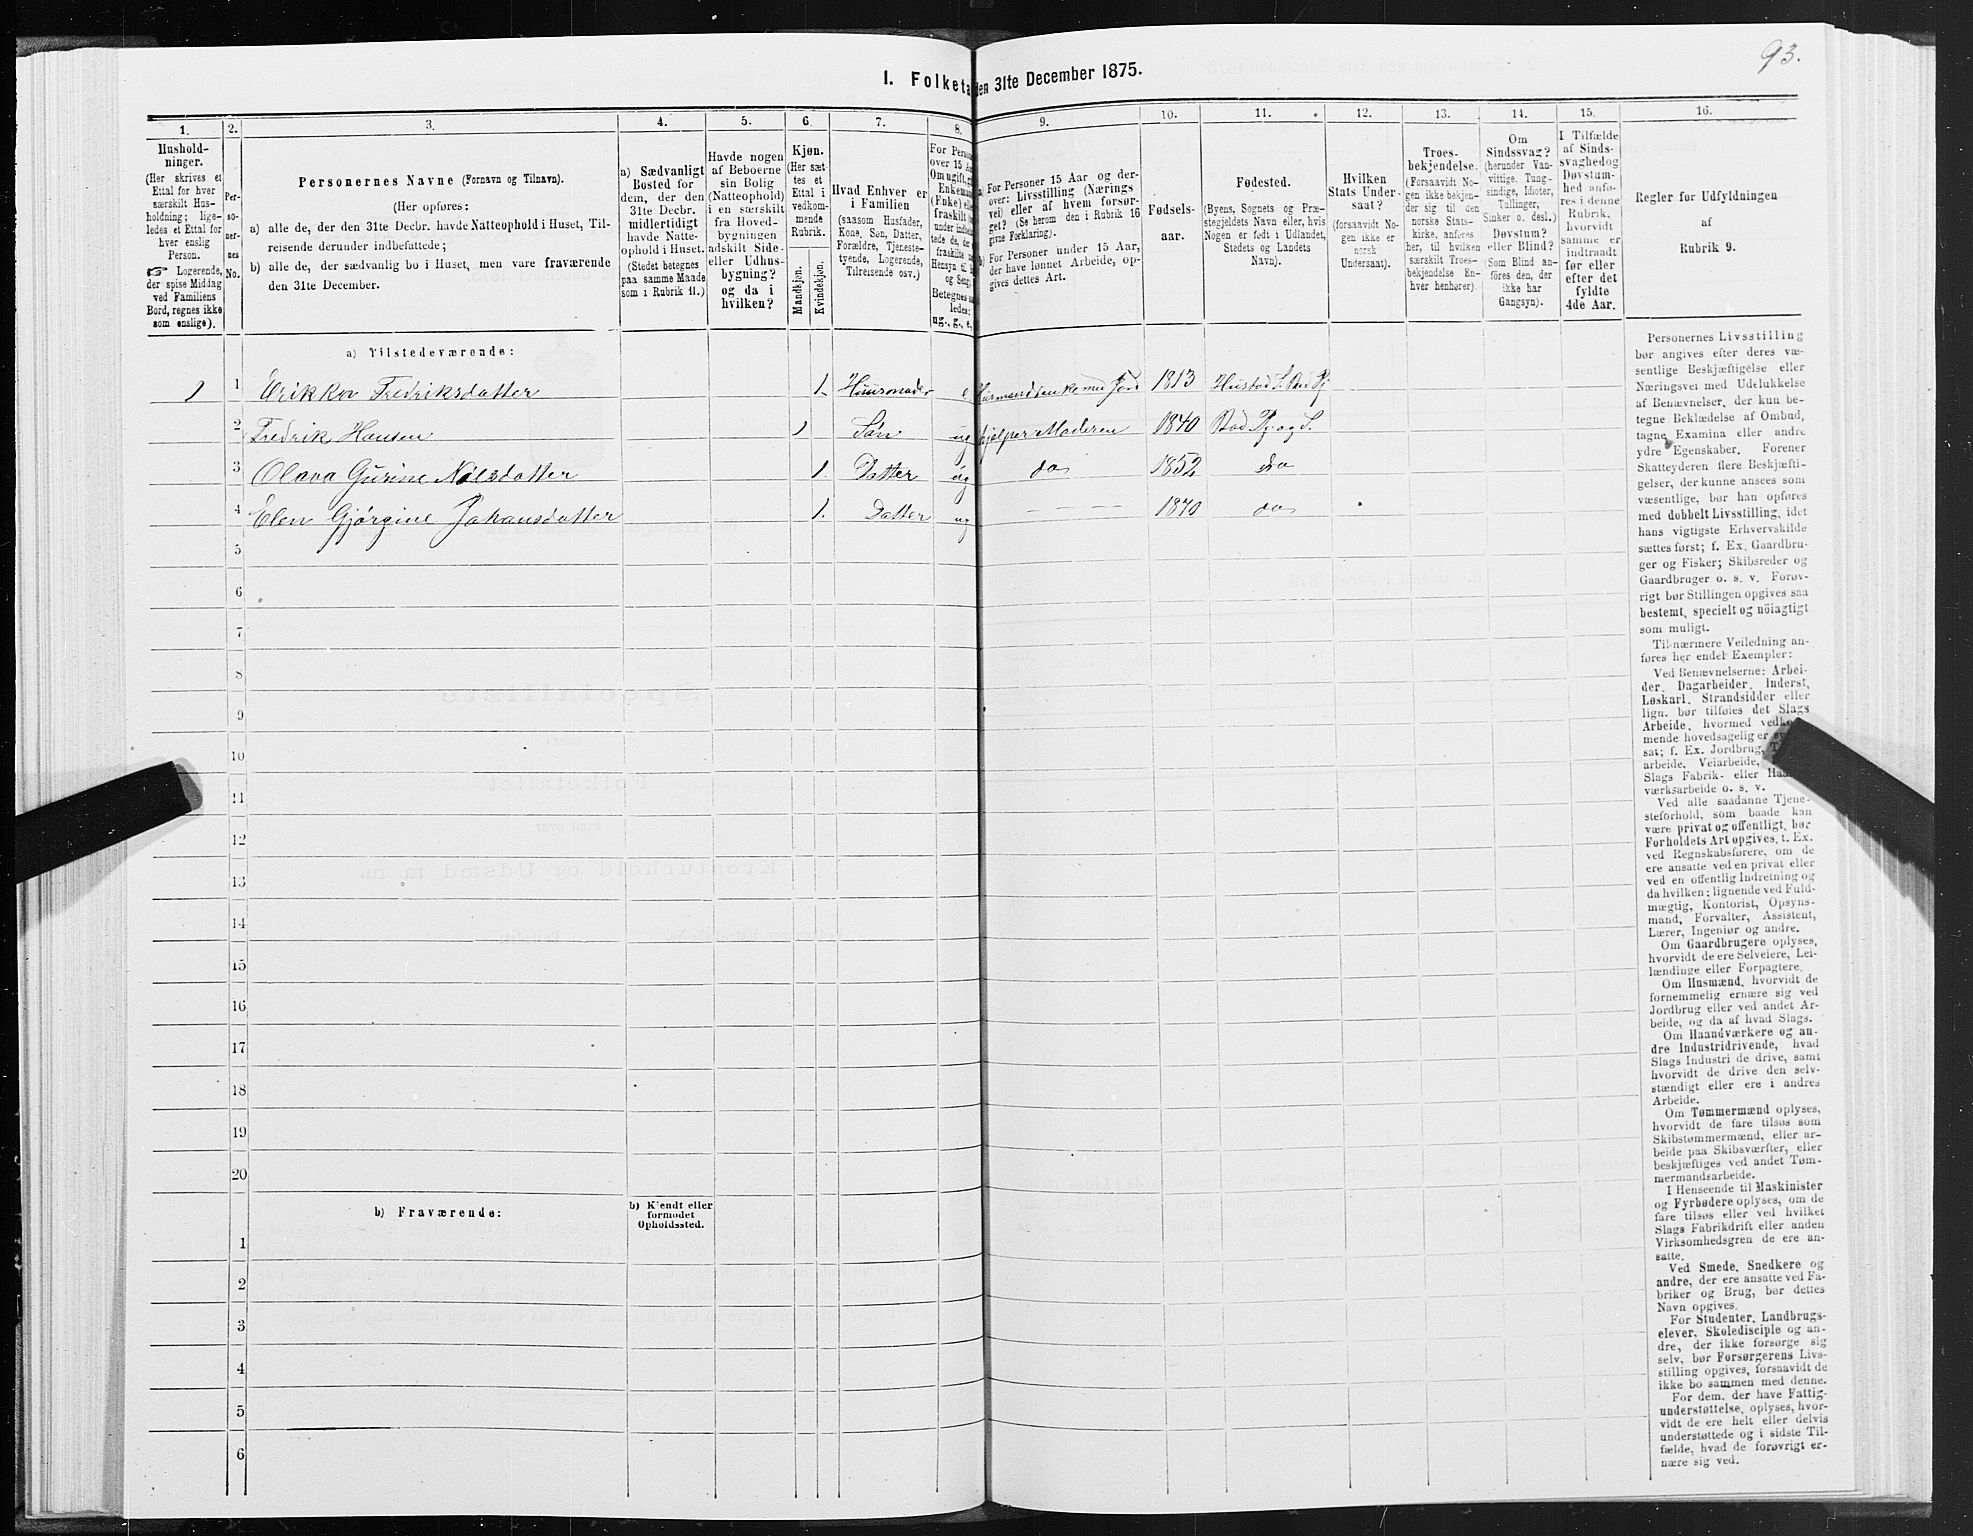 93.
1. Folketa
den 31te December 1875.
1. 2. 3. 4. 5. 6. 7. 8. 9. 10. 11. 12. 13. 14. 15. 16.
Hushold-
ninger.
(Her skrives et
Ettal for hver
særskilt Hus-
holdning; lige-
ledes et Ettal for
hver enslig
Person.
☞ Logerende,
der spise Middag
ved Familiens
Bord, regnes ikke
som enslige).
Per-
so-
ner-
nes
No.
Personernes Navne (Fornavn og Tilnavn).
(Her opføres:
a) alle de, der den 31te Decbr. havde Natteophold i Huset, Til-
reisende derunder indbefattede;
b) alle de, der sædvanlig bo i Huset, men vare fraværende
den 31te December.
a) Sædvanligt
Bosted for
dem, der den
31te Decbr.
midlertidigt
havde Natte-
ophold i Huset.
(Stedet betegnes
paa samme Maade
som i Rubrik 11.)
Havde nogen
af Beboerne
sin Bolig
(Natteophold)
i en særskilt
fra Hoved-
bygningen
adskilt Side-
eller Udhus-
bygning?
og da i
hvilken?
Kjøn.
(Her sæt-
tes et
Ettal i
vedkom-
mende
Rubrik.
Mandkjøn.
Kvindekjøn.
Hvad Enhver er
i Familien
(saasom Husfader,
Kone, Søn, Datter,
Forældre, Tjeneste-
tyende, Logerende,
Tilreisende osv.)
For Perso
over 15 A
Om ugift, g
Enkema
(Enke) el
fraskilt
under
tede de, de
fraskilte
Hensyn til
og Seng.
Betegnes s
ledes:
ug., g., e.
a) For Personer 15 Aar og der-
over: Livsstilling (Nærings
vei) eller af hvem forsør-
get? (Se herom den i Rubrik 16
givne Forklaring).
b) For Personer under 15 Aar,
der have lønnet Arbeide, op-
gives dettes Art.
Fødsels-
aar.
Fødested.
(Byens, Sognets og Præ-
stegjeldets Navn eller, hvis
Nogen er født i Udlandet,
Stedets og Landets
Navn).
Hvilken
Stats Under-
saat?
(forsaavidt No-
gen ikke er
norsk
Undersaat).
Troes-
bekjendelse.
(Forsaavidt No-
gen ikke bekjen-
der sig til den
norske Stats-
kirke, anføres
her, til hvilken
særskilt Troes-
bekjendelse En-
hver henhører).
Om
Sindssvag?
(herunder Van-
vittige, Tung-
sindige, Idioter,
Tullinger,
Sinker o. desl.)
Døvstum?
eller Blind?
(Som Blind an-
føres den, der
ikke har
Gangsyn).
I Tilfælde
af Sinds-
svaghed og
Døvstum-
hed anfø-
res i denne
Rubrik,
hvorvidt
samme er
indtraadt
før eller
efter det
fyldte
4de Aar.
Regler for Udfyldningen
af
Rubrik 9.
a) Tilstedeværende:
1 1 Erikka Fredriksdatter 1 Huusmoder e Husmandsenke med Jord 1813 Hustad S. Bod Pj
2 Fredrik Hansen 1 Søn ug hjelper Moderen 1840 Bod Pj. og S.
3 Olava Gurine Nilsdatter 1. Datter ug do 1852 do
4 Elen Gjørgine Johansdatter 1. Datter ug — — — 1870 do
5
6
7
8
9
10
11
12
13
14
15
16
17
18
19
20
b) Fraværende:
b) Kjendt eller
formodet
Opholdssted.
1
2
3
4
5
6
Personernes Livsstilling
bør angives efter deres væ-
sentlige Beskjæftigelse eller
Næringsvei med Udelukkelse
af Benævnelser, der kun be-
tegne Beklædelse af Ombud,
tagne Examina eller andre
ydre Egenskaber. Forener
Skatteyderen flere Beskjæfti-
gelser, der kunne ansees som
væsentlige, bør han opføres
med dobbelt Livsstilling, idet
hans vigtigste Erhvervskilde
sættes først; f. Ex. Gaardbru-
ger og Fisker; Skibsreder og
Gaardbruger o. s. v. Forøv-
rigt bør Stillingen opgives saa
bestemt, specielt og nöiagtigt
som muligt.
Til nærmere Veiledning an-
føres her endel Exempler:
Ved Benævnelserne: Arbei-
der, Dagarbeider, Inderst,
Løskarl, Strandsidder eller
lign. bør tilføies det Slags
Arbeide, hvormed vedkom-
mende hovedsagelig er sys-
sat; f. Ex. Jordbrug,
arbeide, Veiarbeide,
Slags Fabrik- eller Haand-
værksarbeide o. s. v.
Ved alle saadanne Tjene-
steforhold, som baade kan
være privat og offentligt, bør
Forholdets Art opgives, t. Ex.
ved Regnskabsførere, om de
ere ansatte ved en privat eller
ved en offentlig Indretning og
da hvilken; lignende ved Fuld-
mægtig, Kontorist, Opsyns-
mand, Forvalter, Assistent,
Lærer, Ingeniør og andre.
Om Gaardbrugere oplyses,
hvorvidt de ere Selveiere, Lei-
lændinge eller Forpagtere.
Om Husmænd, hvorvidt de
fornemmelig ernære sig ved
Jordbrug eller ved andet Ar-
beide, og da af hvad Slags.
Om Haandværkere og an-
dre Industridrivende, hvad
Slags Industri de drive, samt
hvorvidt de drive den selv-
stændigt eller ere i andres
Arbeide.
Om Tømmermænd oplyses,
hvorvidt de fare tilsøs som
Skibstømmermænd, eller ar-
beide paa Skibsværfter, eller
beskjæftiges ved andet Tøm-
mermandsarbeide.
I Henseende til Maskinister
og Fyrbødere oplyses, om de
fare tilsøs eller ved hvilket
Slags Fabrikdrift eller anden
Virksomhedsgren de ere an-
satte.
Ved Smede, Snedkere og
andre, der ere ansatte ved Fa-
briker og Brug, bør dettes
Navn opgives.
For Studenter, Landbrugs-
elever, Skoledisciple og an-
dre, der ikke forsørge sig
selv, bør Forsørgerens Livs-
stilling opgives, forsaavidt de
ikke bo sammen med denne.
For dem, der have Fattig-
understøttelse, oplyses, hvor-
vidt de ere helt eller delvis
understøttede og i sidste Til-
fælde, hvad de forøvrigt er-
nære sig ved.